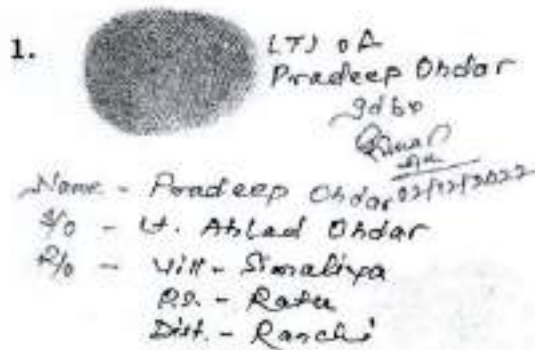 1.
LTI of
Pradeep Ohdar
Idby
Kumar
02/12/2022
Name - Pradeep Ohdar
S/o - Lt. Ahlad Ohdar
R/o - Vill - Simaliya
P.S. - Ratu
Dist. - Ranchi